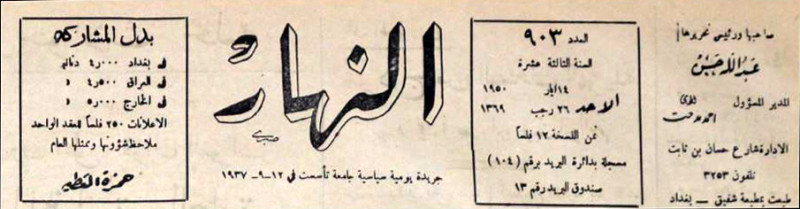 صاحبها ورئيس تحريرها
عبد الله حسن
المدير المسؤول
الادارة شارع حسان بن ثابت
تلفون ٣٢٥٣
طبعت بمطبعة شفيق — بغداد
العدد ٩٠٣
السنة الثالثة عشرة
١٤ ايار ١٩٥٠
الاحد ٢٦ رجب ١٣٦٩
ثمن النسخة ١٢ فلسا
مسجلة بدائرة البريد برقم (١٠٤)
صندوق البريد رقم ١٣
النهار
جريدة يومية سياسية جامعة تأسست في ١٢-٩-١٩٣٧
بدل المشاركة
في بغداد ٤٫٠٠٠ دنانير
في العراق ٤٫٥٠٠ »
في الخارج ٥٫٠٠٠ »
الاعلانات ٢٥٠ فلساً للعقد الواحد
ملاحظ شؤونها وممثلها العام
حمزة